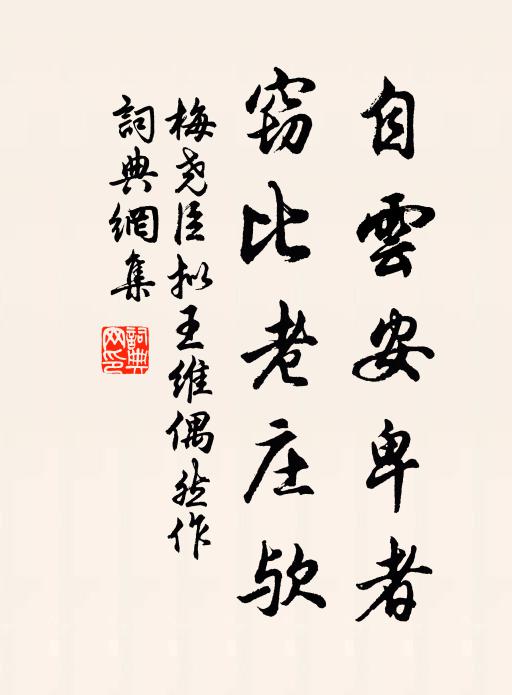 自雲安卑者
窃比老庄欤
梅尧臣拟王维偶然作
詞典網集
詞典网印